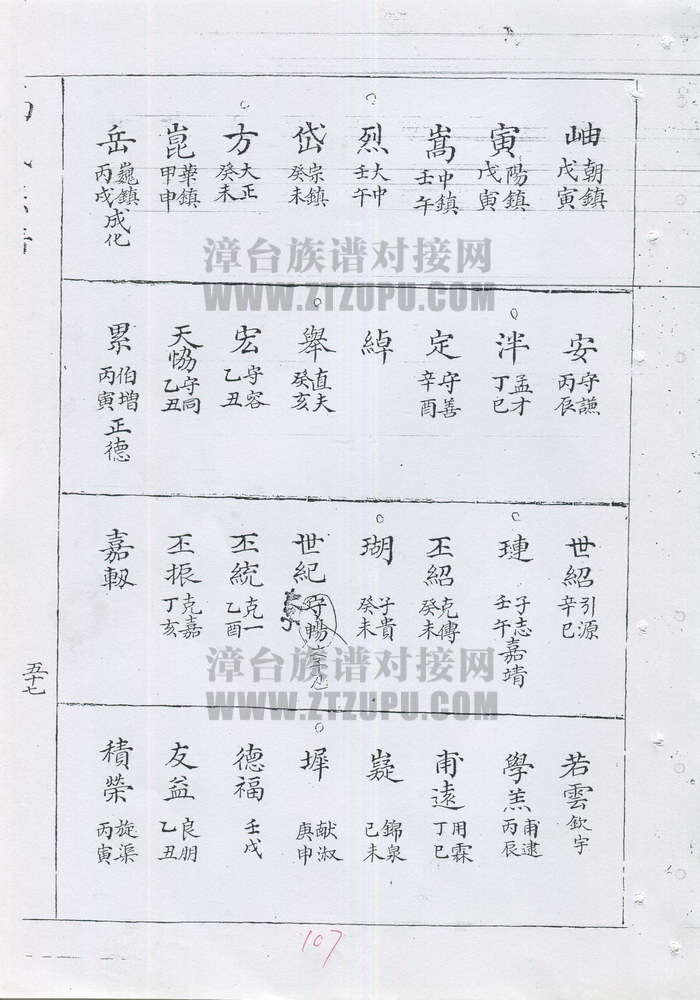 岫 朝鎮 戊寅
寅 陽鎮 戊寅
嵩 中鎮 壬午
烈 大中 壬午
岱 宗鎮 癸未
方 大正 癸未
崑 華鎮 甲申
岳 巍鎮 丙戌 成化
安 守謙 丙辰
泮 孟才 丁巳
定 守善 辛酉
綽
舉 直夫 癸亥
宏 守容 乙丑
天恊 守同 乙丑
累 伯增 丙寅 正德
世紹 引源 辛巳
璉 子志 壬午 嘉靖
丕紹 克傳 癸未
瑚 子貴 癸未
世紀 守暢
丕統 克一 乙酉
丕振 克嘉 丁亥
嘉
若雲 欽宇
學羔 甫逮 丙辰
甫遠 用霖 丁巳
嶷 錦泉 己未
墀 献淑 庚申
德福 壬戌
友益 良朋 乙丑
積榮 旋渠 丙寅
五十七
107
漳台族谱对接网
WWW.ZTZUPU.COM
漳台族谱对接网
WWW.ZTZUPU.COM